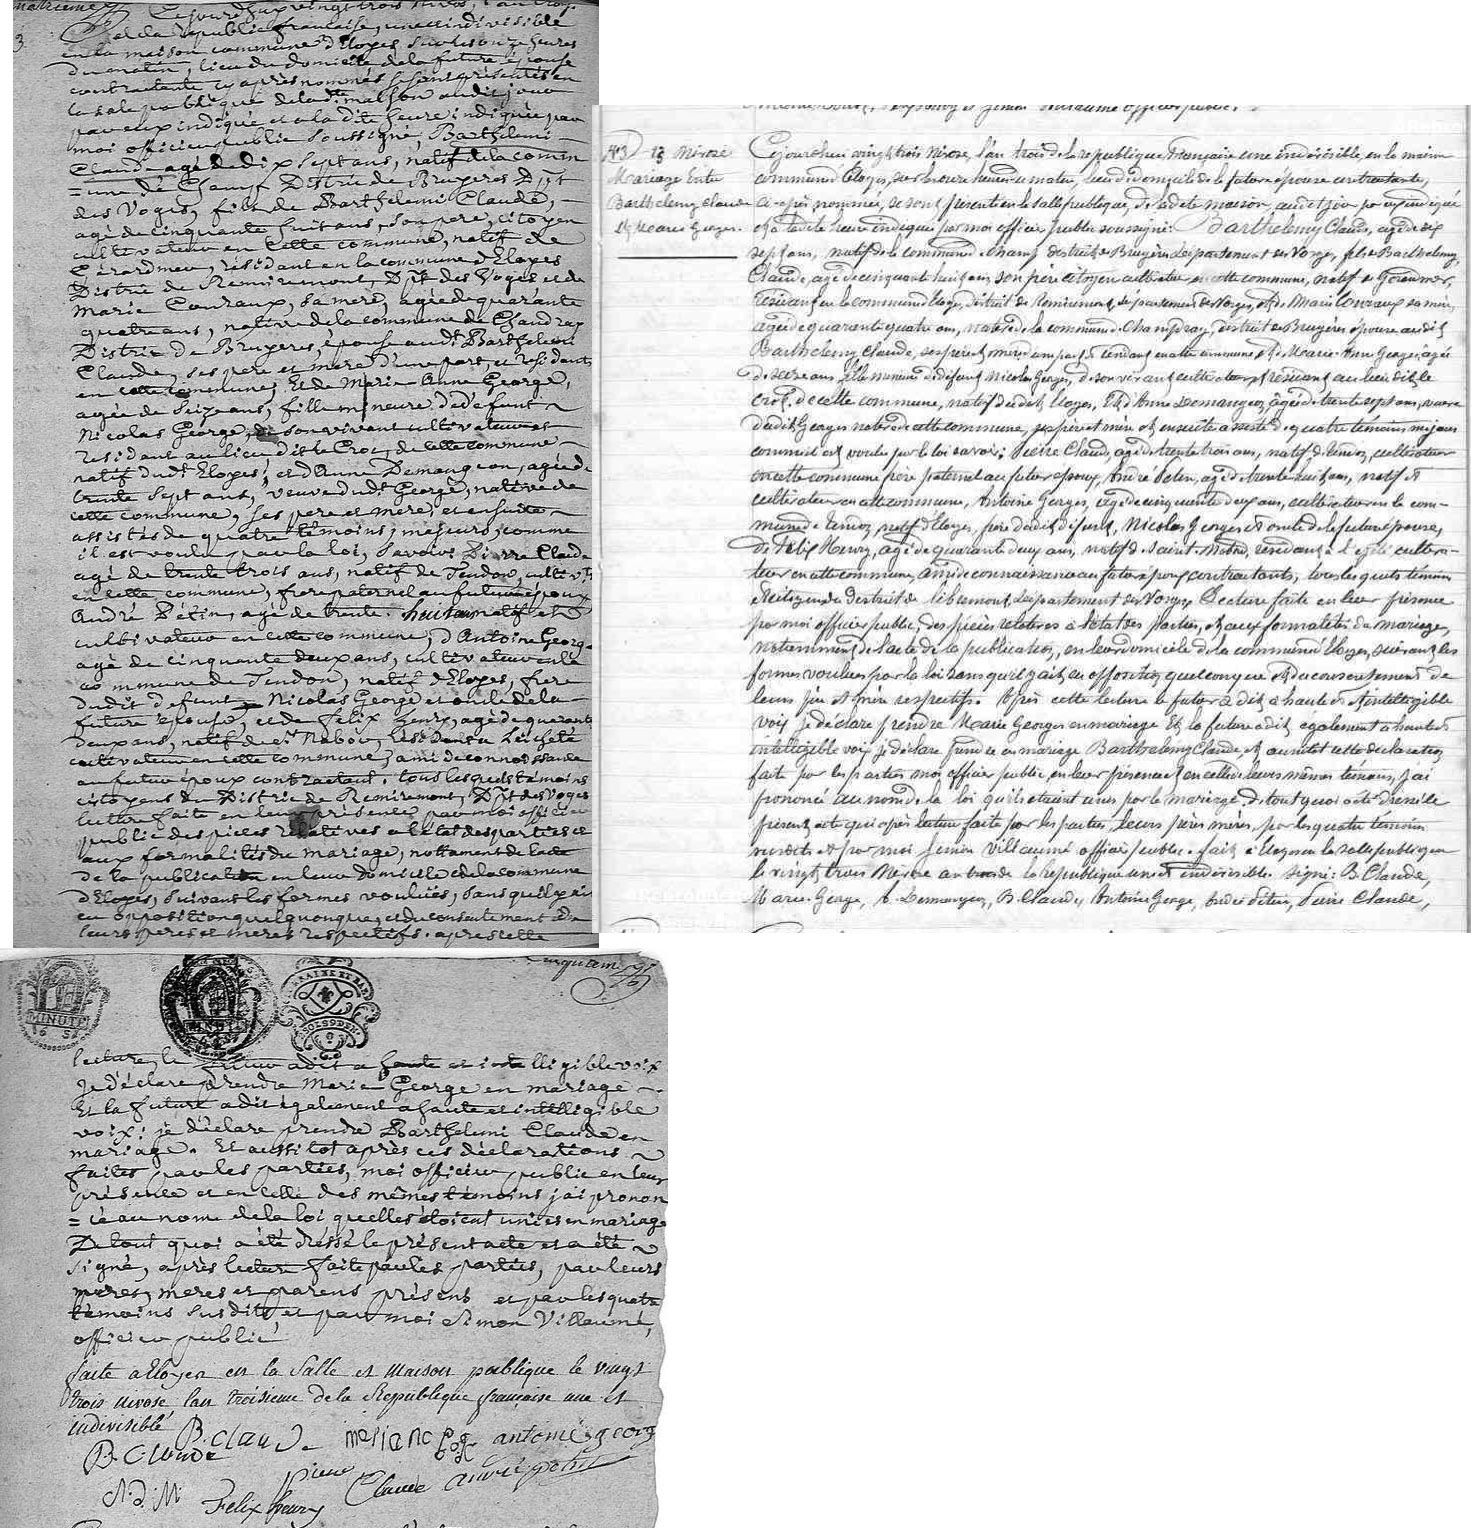 Cejourd'hui vingt trois nivos, l'an trois
de la republique francaise, une et indivisible
en la maison commune d'Eloyes sur les onze heures
du matin, lieu du domicile de la future épouse
contractante cy après nommés se sont présentés en
la sale publique de la d.te maison audit jour
par eux indiqué et a la dite heure indiquée par
moi officier public soussigné, Barthelemi
Claude agé de dix sept ans, natif de la comm
= une de Champ Distric de Bruyeres Dpt
des Voges, fils de Barthelemi Claude,
agé de cinquante huit ans, son pere, citoyen
cultivateur en cette commune, natif de
Gérardmer, résidant en la commune d'Eloyes
Distric de Remiremont, Dpt des Voges et de
Marie Couraux, sa mere, agée de quarante
quatre ans, native de la commune de Chandray
Distric de Bruyeres, épouse audt Barthelemi
Claude, ses pere et mere d'une part, et résidants
en cette commune, Et de Marie Anne George,
agée de seize ans, fille mineure de defunt
Nicolas George, de son vivant cultivateur et
residant au lieu dit le Croc, de cette commune
natif dudt Eloyes, et d'Anne Demangeon, agée de
trente sept ans, veuve dudt George, native de
cette commune, ses pere et mere, et ensuite
assistés de quatre témoins, majeurs, comme
il est voulu par la loi, savoir Pierre Claude
agé de trente trois ans, natif de Tendon, cultivr
en cette commune, frere paternel au futur époux
André Pétin, agé de trente huit ans natif et
cultivateur en cette commune, d'Antoine George
agé de cinquante deux ans, cultivateur en la
commune de Tendon, natif d'Eloyes, frere
dudit defunt Nicolas George et oncle de la
future épouse, et de Felix Henry, agé de quarante
deux ans, natif de St Nabor, résidant a
cultivateur en cette commune, ami de connoissance
au futur époux contractant. tous lesquels témoins
citoyens du Distric de Remiremont, Dpt des Voges
lecture faite en leur présence par moi officier
public des pieces relatives a l'état des parties et
aux formalités du mariage, nottament de l'acte
de la publication en leur domicile de la commune
d'Eloyes, suivant les formes voulües, sans qu'il y ait
eu opposition quelquonque, et du consentement de
leurs peres et meres respectifs. apres cette
113 - 23 Nivose
Mariage Entre
Barthelemy Claude
Et Marie Georges.
Cejourdhui vingt trois Nivose, l'an trois de la republique française une indivisible, en la maison
commune d'Eloyes, sur les onze heures du matin, lieu du domicile de la future épouse contractante,
ci-après nommés, se sont présentés en la salle publique, de la dite maison, audit jour par eux indiqué
et à la dite heure indiquée par moi officier public soussigné: Barthelemy Claude, agé de dix
sept ans, natif de la commune de Champ district de Bruyères département des Vosges, fils de Barthelemy
Claude, agé de cinquante huit ans, son père citoyen cultivateur en cette commune, natif de Gérardmer,
résidant en la commune d'Eloyes, district de Remiremont, département des Vosges, et de Marie Couraux sa mère,
agée de quarante quatre ans, native de la commune de Champdray, district de Bruyères épouse audit
Barthelemy Claude, ses père et mère d'une part résidant en cette commune et de Marie Anne Georges, agée
de seize ans fille mineure de défunt Nicolas Georges, de son vivant cultivateur et résidant au lieu dit le
Croc, de cette commune, natif dudit Eloyes, Et d'Anne Demangeon, agée de trente sept ans, veuve
dudit Georges native de cette commune, ses père et mère et ensuite assisté de quatre témoins majeurs
comme il est voulu par la loi savoir: Pierre Claude, agé de trente trois ans, natif de Tendon, cultivateur
en cette commune frère paternel au futur époux, André Petin, agé de trente huit ans, natif et
cultivateur en cette commune, Antoine Georges, agé de cinquante deux ans, cultivateur en la com-
mune de Tendon, natif d'Eloyes, frère dudit défunt, Nicolas Georges et oncle de la future épouse,
de Felix Henry, agé de quarante deux ans, natif de Saint Nabor, résidant à cultiva-
teur en cette commune, ami de connaissance au futur époux contractants, tous lesquels témoins
et citoyens du district de libremont, département des Vosges Lecture faite en leur présence
par moi officier public, des pièces relatives à l'état des parties, et aux formalités du mariage,
notamment de l'acte de la publication, en leur domicile de la commune d'Eloyes, suivant les
formes voulues par la loi sans qu'il y ait eu opposition quelconque et du consentement de
leurs père et mère respectifs. Après cette lecture le futur a dit à haute et intelligible
voix je déclare prendre Marie Georges en mariage Et la future a dit également à haute et
intelligible voix je déclare prendre en mariage Barthelemy Claude, et aussitôt cette déclaration
faite par les parties moi officier public, en leur présence et en celle de leurs mêmes témoins, j'ai
prononcé au nom de la loi qu'ils étaient unis par le mariage. de tout quoi a été dressé le
présent acte qui après lecture faite par les parties, leurs pères mères, par les quatre témoins
susdits et par moi Simon Villaumé officier public. fait à Eloyes en la salle publique
le vingt trois Nivose an trois de la république une et indivisible. signé: B. Claude,
Marie George, A. Demangeon, B. Claude, Antoine George, André Petin, Pierre Claude,
MINUTE
MINUTE
lecture, le futur a dit a haute et intelligible voix
Je déclare prendre Marie George en mariage
Et la future a dit également a haute et intelligible
voix: je déclare prendre Barthelemi Claude en
mariage. Et aussi tot après ces déclarations
faites par les parties, moi officier public en leur
présence et en celle des mêmes témoins j'ai pronon
= cé au nom de la loi, quelles étoient unies en mariage
De tout quoi a été dréssé le présent acte et a été
signé, après lecture faite par les parties, par leurs
peres, meres et parens présens et par les quatre
témoins susdits, et par moi Simon Villaumé,
officier public
faite a Eloyes en la Salle et maison publique le vingt
trois nivose l'an troisieme de la Republique française une et
indivisible
B. Claude
B. Claude
antoine georg
A. d. M
Felix henry
pierre Claude
andré petin